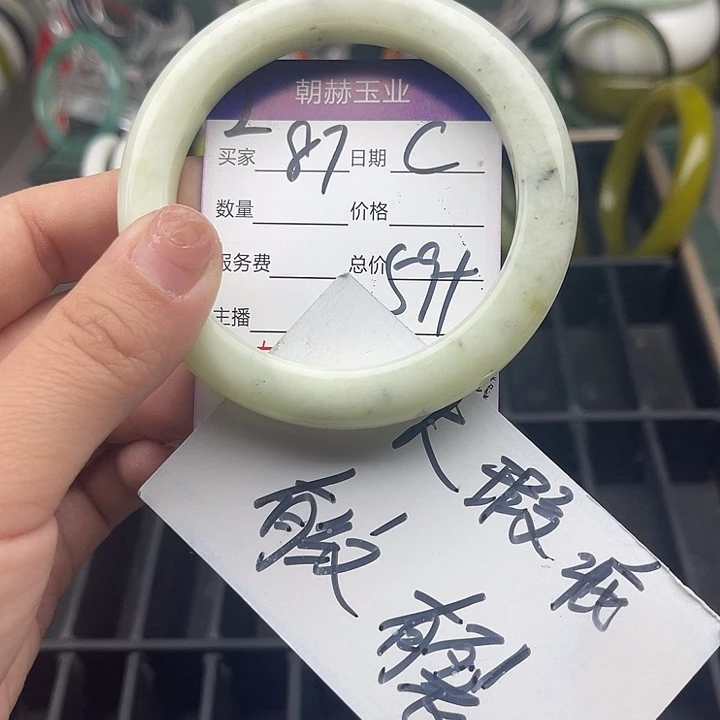 朝赫玉业
买家 87 日期 C
数量 价格
服务费 总价 59H
主播
大瑕疵
有纹
有裂